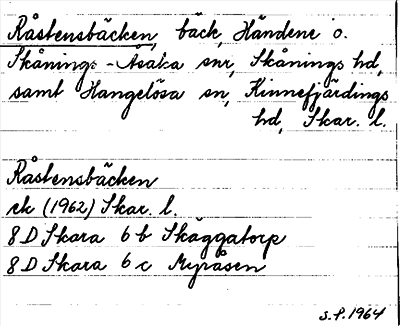 Råstensbäcken, bäck, Händene o.
Skånings-Åsaka snr, Skånings hd,
samt Hangelösa sn, Kinnefjärdings
hd, Skar. l.
Råstensbäcken
ek (1962) Skar. l.
8 D Skara 6 b Skäggatorp
8 D Skara 6 c Myråsen
S.P. 1964